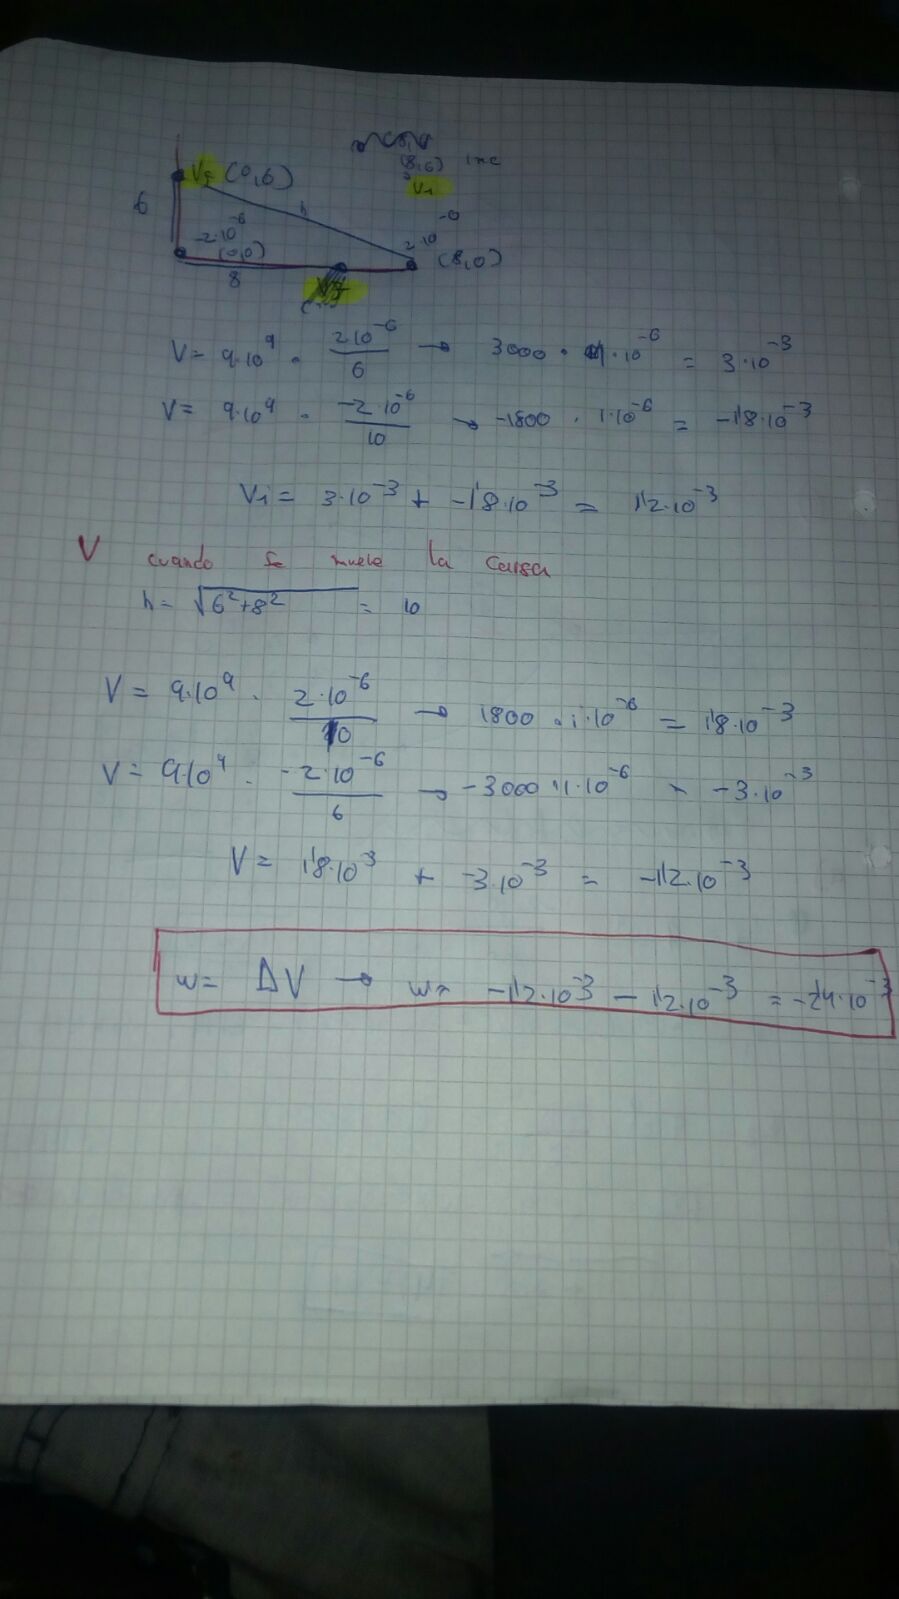 (8,6)
V₁
V₂ (0,6)
6
h
-2·10⁻⁶
(0,0)
2·10⁻⁶
(8,0)
8
V = 9·10⁹ · 2·10⁻⁶/6 → 3000 · 1·10⁻⁶ = 3·10⁻³
V = 9·10⁹ · -2·10⁻⁶/10 → -1800 · 1·10⁻⁶ = -1'8·10⁻³
Vi = 3·10⁻³ + -1'8·10⁻³ = 1'2·10⁻³
V cuando se mueve la carga
h = √6²+8² = 10
V = 9·10⁹ · 2·10⁻⁶/10 → 1800 · 1·10⁻⁶ = 1'8·10⁻³
V = 9·10⁹ · -2·10⁻⁶/6 → -3000 · 1·10⁻⁶ = -3·10⁻³
V = 1'8·10⁻³ + -3·10⁻³ = -1'2·10⁻³
w = ΔV → w = -1'2·10⁻³ - 1'2·10⁻³ = -2'4·10⁻³